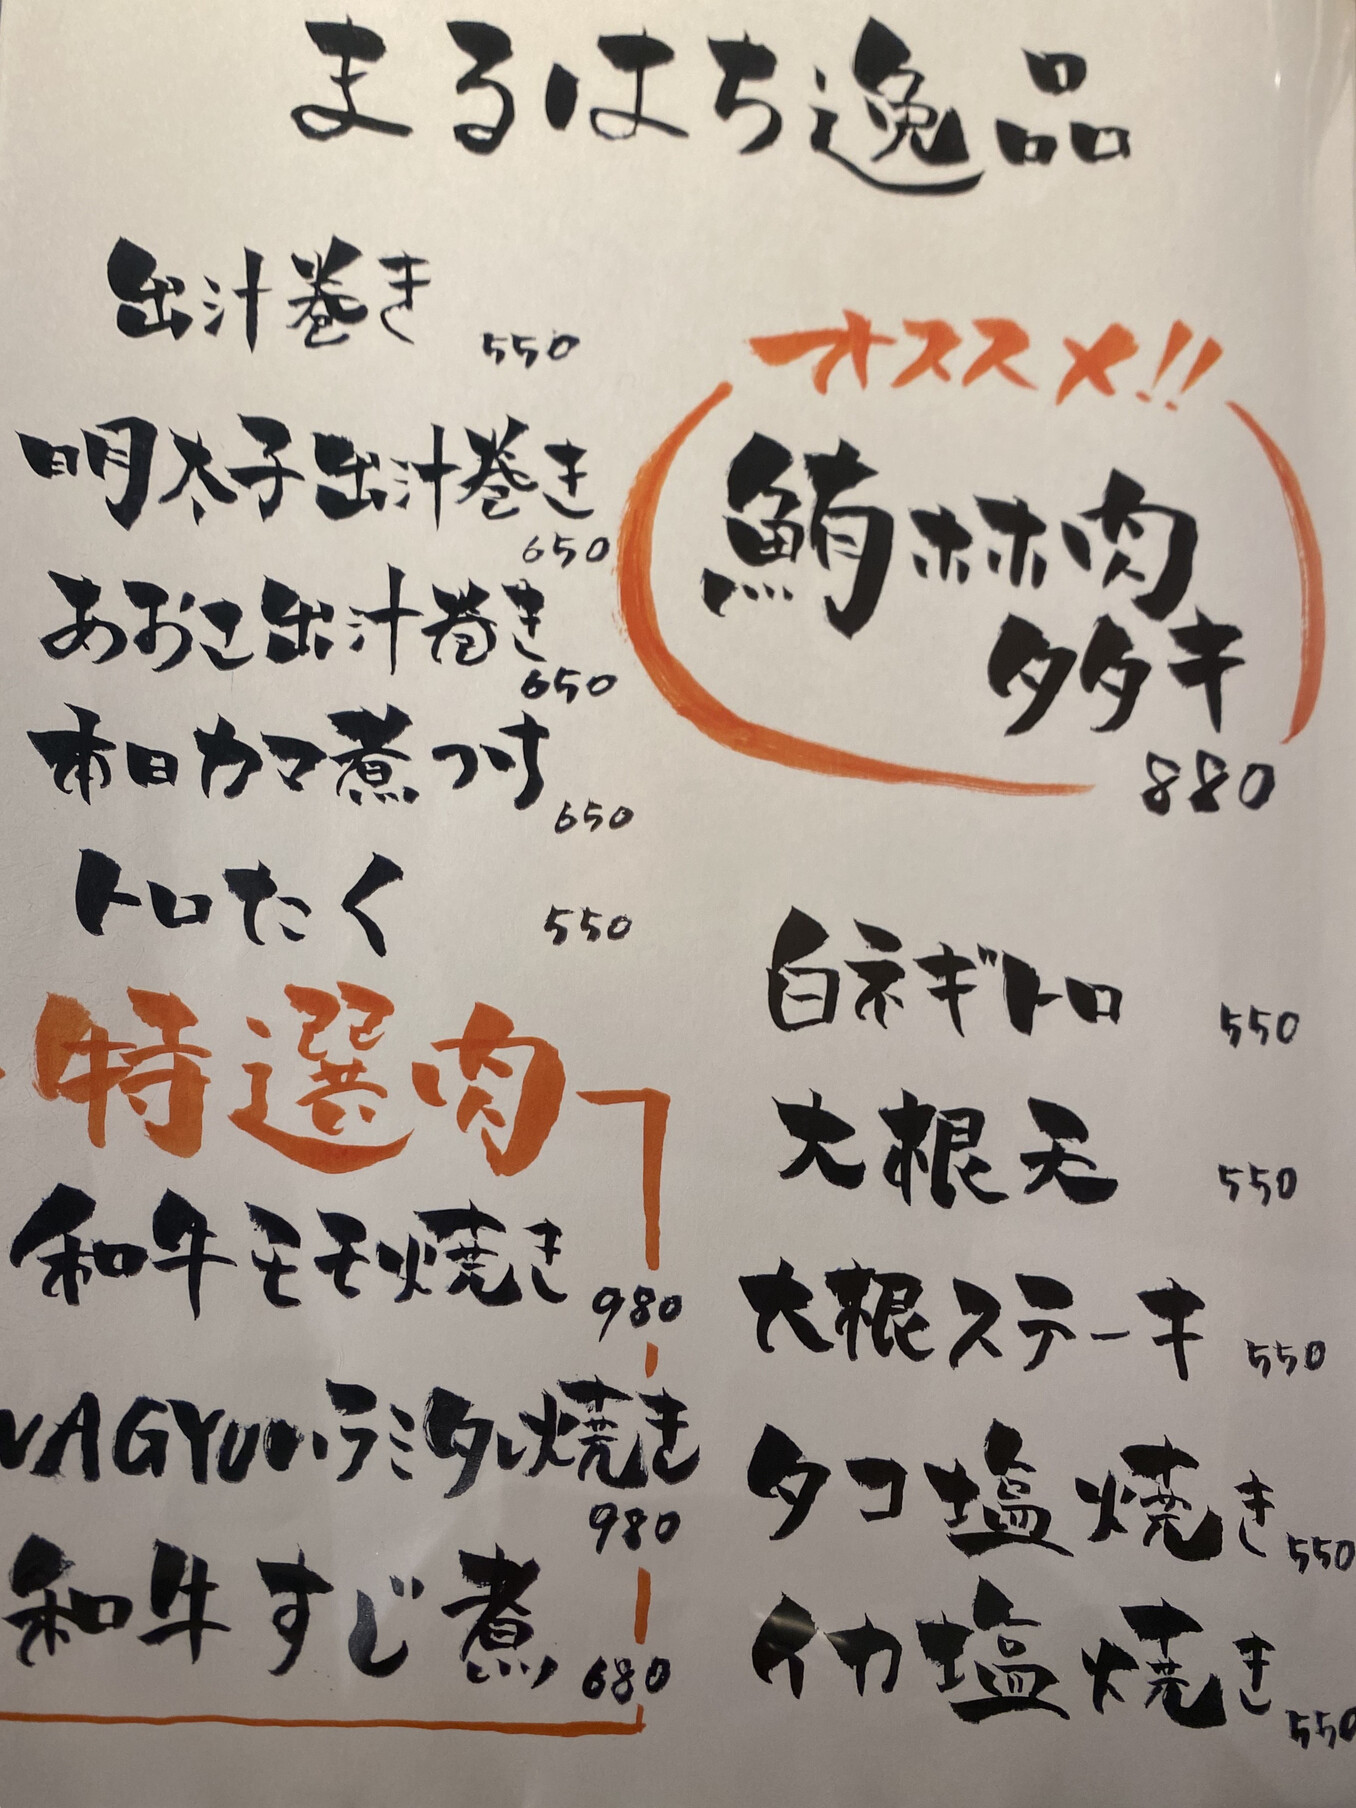 まるはち逸品
出汁巻き 550
明太子出汁巻き 650
あおさ出汁巻き 650
本日カマ煮つけ 650
トロたく 550
特選肉
和牛モモ焼き 980
WAGYUハラミタレ焼き 980
和牛すじ煮 680
オススメ!!
鮪ホホ肉
タタキ
880
白ネギトロ 550
大根天 550
大根ステーキ 550
タコ塩焼き 550
イカ塩焼き 550